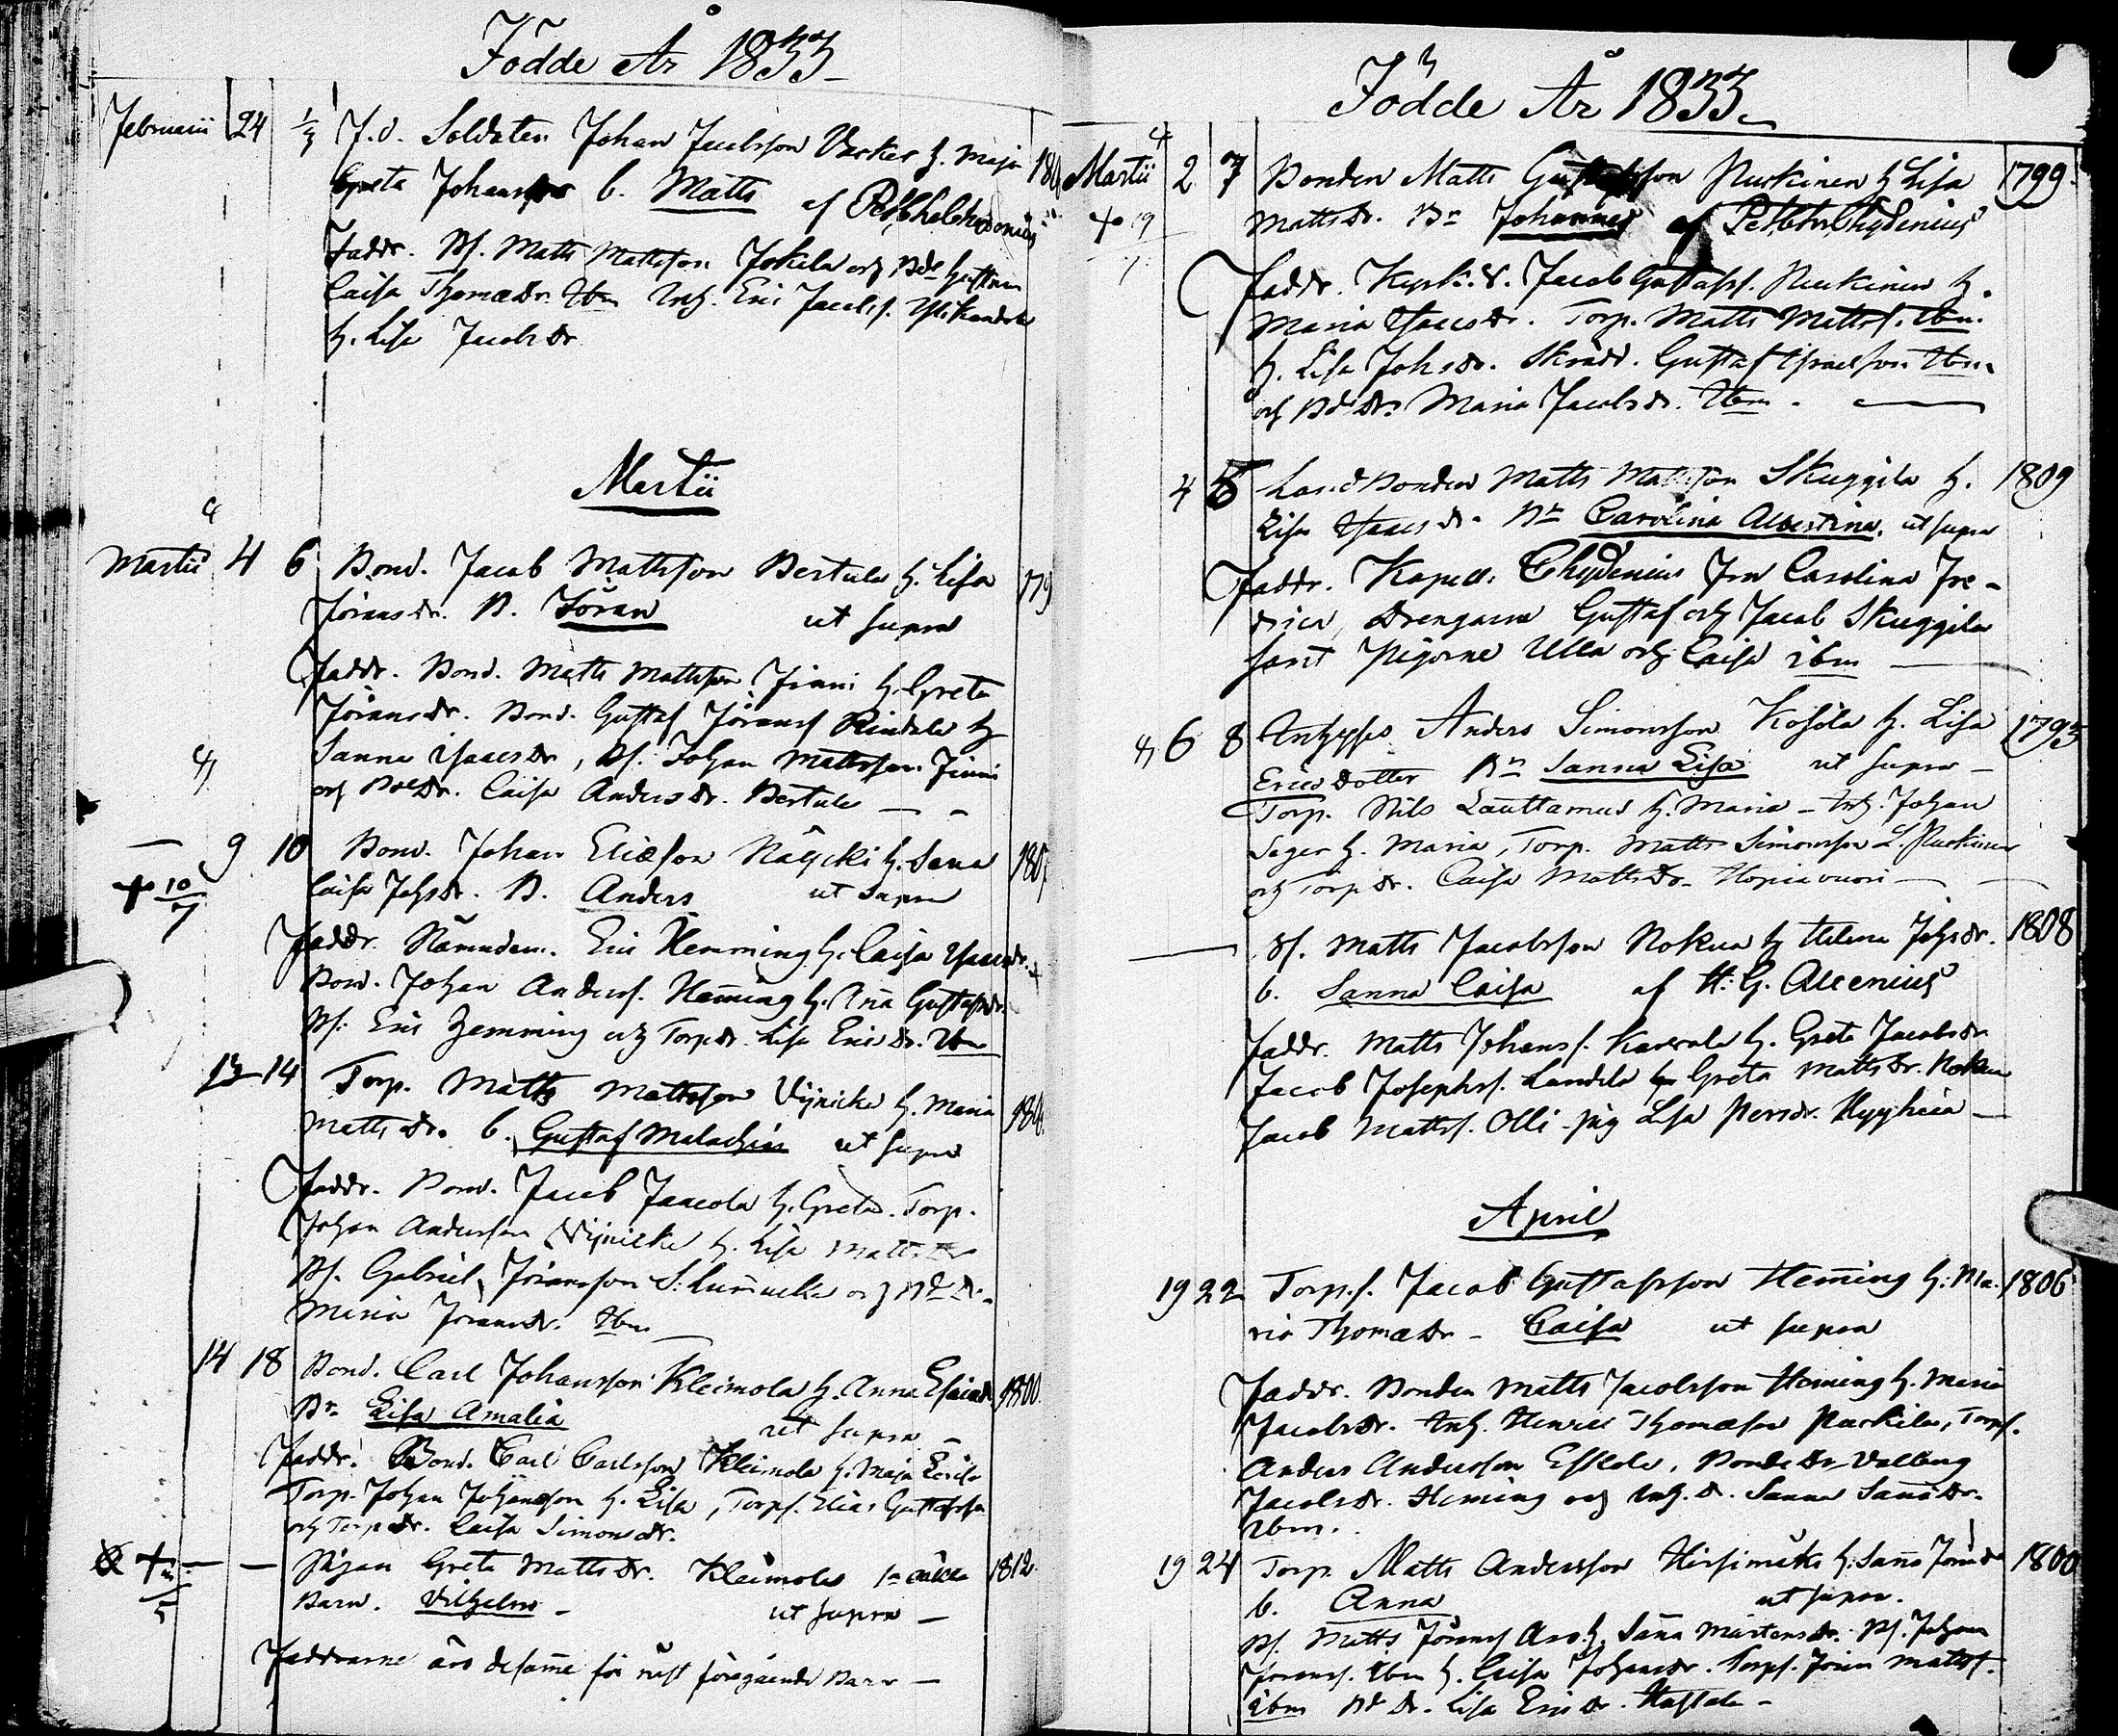 Födde År 1833
Februarii 24 1/3 F.d. Soldaten Johan Jacobsson Varker h. Maja 180
Greta Johansdr b. Matts af Pett. Chydenius
Faddr. Bs. Matts Mattsson Jokela och Bdr
Caisa Thomædr. Ibm Inh. Eric Jacobss.
h. Lisa Jacobsdr
Martii
Martii 4 6 Bond. Jacob Mattsson Bertula h. Lisa 179
Jöransdr. B. Jöran ut supra
Faddr. Bond. Matts Mattsson Finni h. Greta
Jöransdr. Bond. Gustaf Jöranss Rindala h
Sanna Isaacsdr, Bs. Johan Mattsson Finni
och Bdr. Caisa Andersdr. Bertula
9 10 Bond. Johan Ericsson Näycki h. Sana 180
+ 10/7 Caisa Johsdr. B. Anders ut supra
Faddr. Nämndem. Eric Hemming h. Caisa Isaacsdr.
Bond. Johan Anderss. Heming h. Ana Gustafsdr.
Bs. Eric Hemming och Torpdr. Lisa Ericsdr. Ibm
13 14 Torp. Matts Mattsson Vijnicka h. Maria 180
Mattsdr. b. Gustaf Malachias ut supra
Faddr. Bond. Jacob Jaacola h. Greta. Torp.
Johan Andersson Vijnicka h. Lisa Mattsdr
Bs. Gabriel Jöransson S. Lumucka och Bdr.
Maria Jöransdr. Ibm
14 18 Bond. Carl Johansson Kleimola h. Anna Esaiædr 1800.
Bn Lisa Amalia ut supra
Faddr. Bond. Carl Carlsson Kleimola h. Maja Lovisa
Torp. Johan Johansson h. Lisa, Torps. Elias Gustafsson
och Torpdr. Caisa Simonsdr.
+ — — Pigan Greta Mattsdr. Kleimola 1a oäkta 1812.
Barn. Vilhelm ut supra
Faddrarne äro desamme för näst föregående Barn
Födde År 1833
Martii 2 7 Bonden Matts Gustafsson Purkinen h Lisa 1799
+ 19 Mattsdr. Bn Johannes af Petter Chydenius
Faddr. Kyrk.v. Jacob Gustafss. Purkinen h.
Maria Isaacsdr. Torp. Matts Mattss. Ibm.
h. Lisa Johsdr. Skrädd. Gustaf Israelsson Ibm.
och Bdr. Maria Jacobsdr. Ibm.
4 5 Land Bonden Matts Mattsson Skuggila h. 1809
Lisa Isaacsdr. Bn Carolina Albertina. ut supra
Faddr. Kapell. Chydenius Fru Carolina Fre-
drica, Drengarne Gustaf och Jacob Skuggila
samt Pigorne Ulla och Caisa ibm
6 8 Inhyses Anders Simonsson Kosola h. Lisa 1795
Ericsdotter Bn Sanna Lisa ut supra
Torp. Nils Lauttamus h. Maria – Inh. Johan
Seger h. Maria, Torp. Matts Simonsson L. Purkinen
och Torpdr. Caisa Mattsdr. Hopiavuori
— Bs. Matts Jacobsson Nokua h Helena Johsdr. 1808
b. Sanna Caisa af H. G. Alcenius
Faddr. Matts Johanss. Karvala h. Greta Jacobsdr
Jacob Josephss. Landela h Greta Mattsdr. Nokua
Jacob Mattss. Olli – pig Lisa Persdr. Hyyhiä
April
19 22 Torp.s. Jacob Gustafsson Heming h. Ma- 1806
ria Thomædr – Caisa ut supra
Faddr. Bonden Matts Jacobsson Heming h. Maria
Jacobsdr. Inh. Henric Thomæson Paskila, Torps.
Anders Andersson Esskola, Bondedr. Valborg
Jacobsdr. Heming och Inh.dr. Sanna Samsdr.
Ibm.
19 24 Torp. Matts Andersson Hirsimäki h. Sana Jöransdr 1800
b. Anna ut supra.
Bs. Matts Jöranss Aro h. Sana Mårtensdr. Bs. Johan
Joranss. Ibm h. Caisa Johansdr. Torps. Jöran Mattss.
ibm Bd dr. Lisa Ericsdr. Hassala